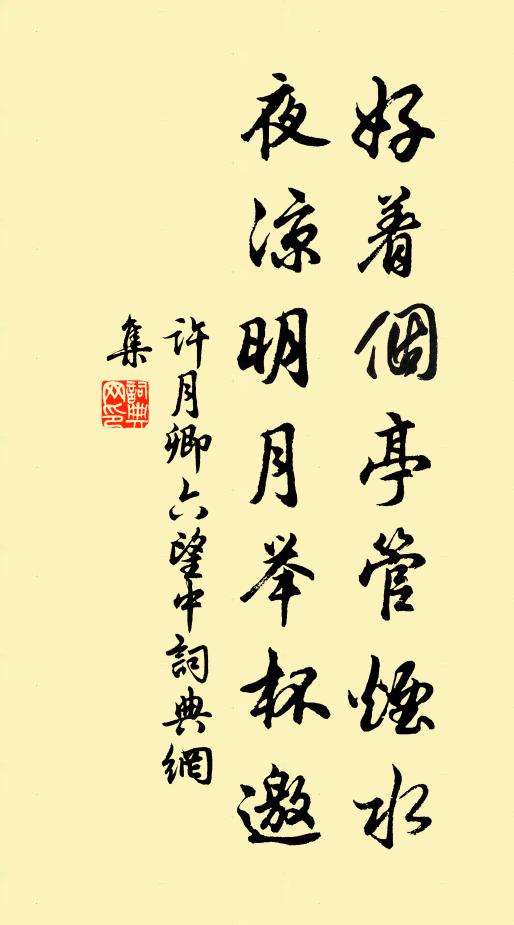 好着個亭管煙水
夜涼明月举杯邀
許月卿六望中詞典網
集
詞典网印